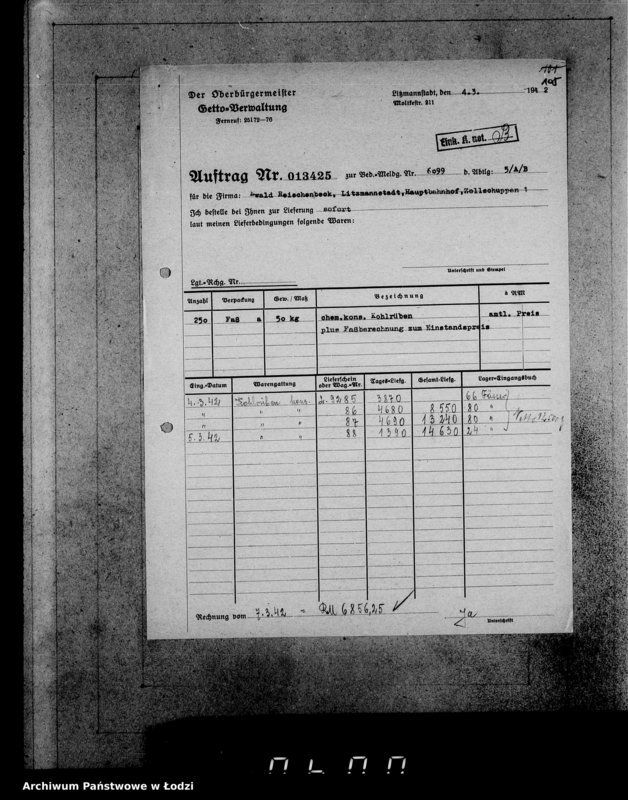 101
105
Der Oberbürgermeister
Getto-Verwaltung
Fernruf: 25172—76
Litzmannstadt, den 4.3. 1942
Moltkestr. 211
Eink. K. not.
Auftrag Nr. 013425 zur Bed.-Meldg. Nr. 6099 d. Abtlg: 5/A/B
für die Firma: Ewald Reischenbeck, Litzmannstadt, Hauptbahnhof, Zollschuppen 1
Ich bestelle bei Ihnen zur Lieferung sofort
laut meinen Lieferbedingungen folgende Waren:
Unterschrift und Stempel
Lgt.-Rchg. Nr.
Anzahl Verpackung Gew. / Maß Bezeichnung à RM
250 Faß a 50 kg chem.kons. Kohlrüben amtl. Preis
plus Faßberechnung zum Einstandspreis
Eing.-Datum Warengattung Lieferschein oder Wag.-Nr. Tages-Liefg. Gesamt-Liefg. Lager-Eingangsbuch
4.3.42 Kohlrüben kons. 9285 3870 66 Fässer
" " " 86 4680 8550 80 "
" " " 87 4690 13240 80 "
5.3.42 " " 88 1390 14630 24 "
Rechnung vom 7.3.42 = RM 6856,25
Ja
Unterschrift
Archiwum Państwowe w Łodzi